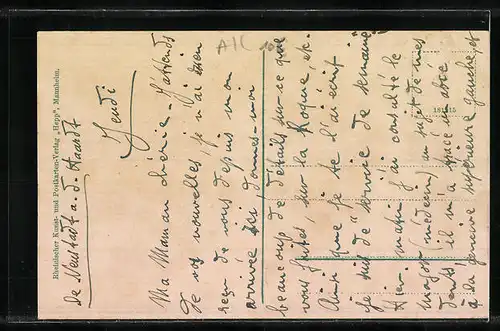 Rheinischer Kunst- und Postkarten-Verlag „Hepp", Mannheim.
de Neustadt a. d. Haardt
Jeudi
Ma Maman chérie - J'attends
de vos nouvelles, je n'ai rien
reçu de vous depuis mon
arrivée ici donnes-moi
beaucoup de détails sur ce que
vous faites, sur la Roque, etc.
Ainsi que je te l'ai écrit
je suis de "service de semaine"
Hier matin j'ai consulté le
major (médecin) au sujet de mes
dents, il m'a trouvé un abcé
à la gencive supérieure gauche, et